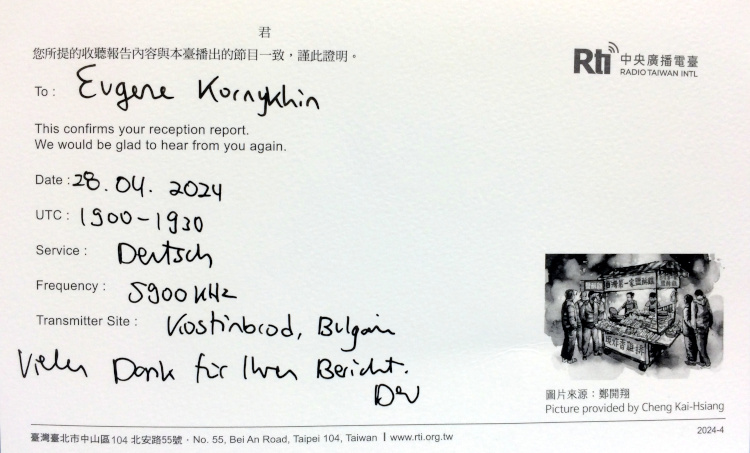 君
您所提的收聽報告內容與本臺播出的節目一致，謹此證明。
Rti 中央廣播電臺
RADIO TAIWAN INTL
To : Eugene Kornykhin
This confirms your reception report.
We would be glad to hear from you again.
Date : 28.04.2024
UTC : 1900-1930
Service : Deutsch
Frequency : 5900 KHz
Transmitter Site : Kostinbrod, Bulgarien
Vielen Dank für Ihren Bericht.
圖片來源：鄭開翔
Picture provided by Cheng Kai-Hsiang
臺灣臺北市中山區104 北安路55號・No. 55, Bei An Road, Taipei 104, Taiwan | www.rti.org.tw
2024-4